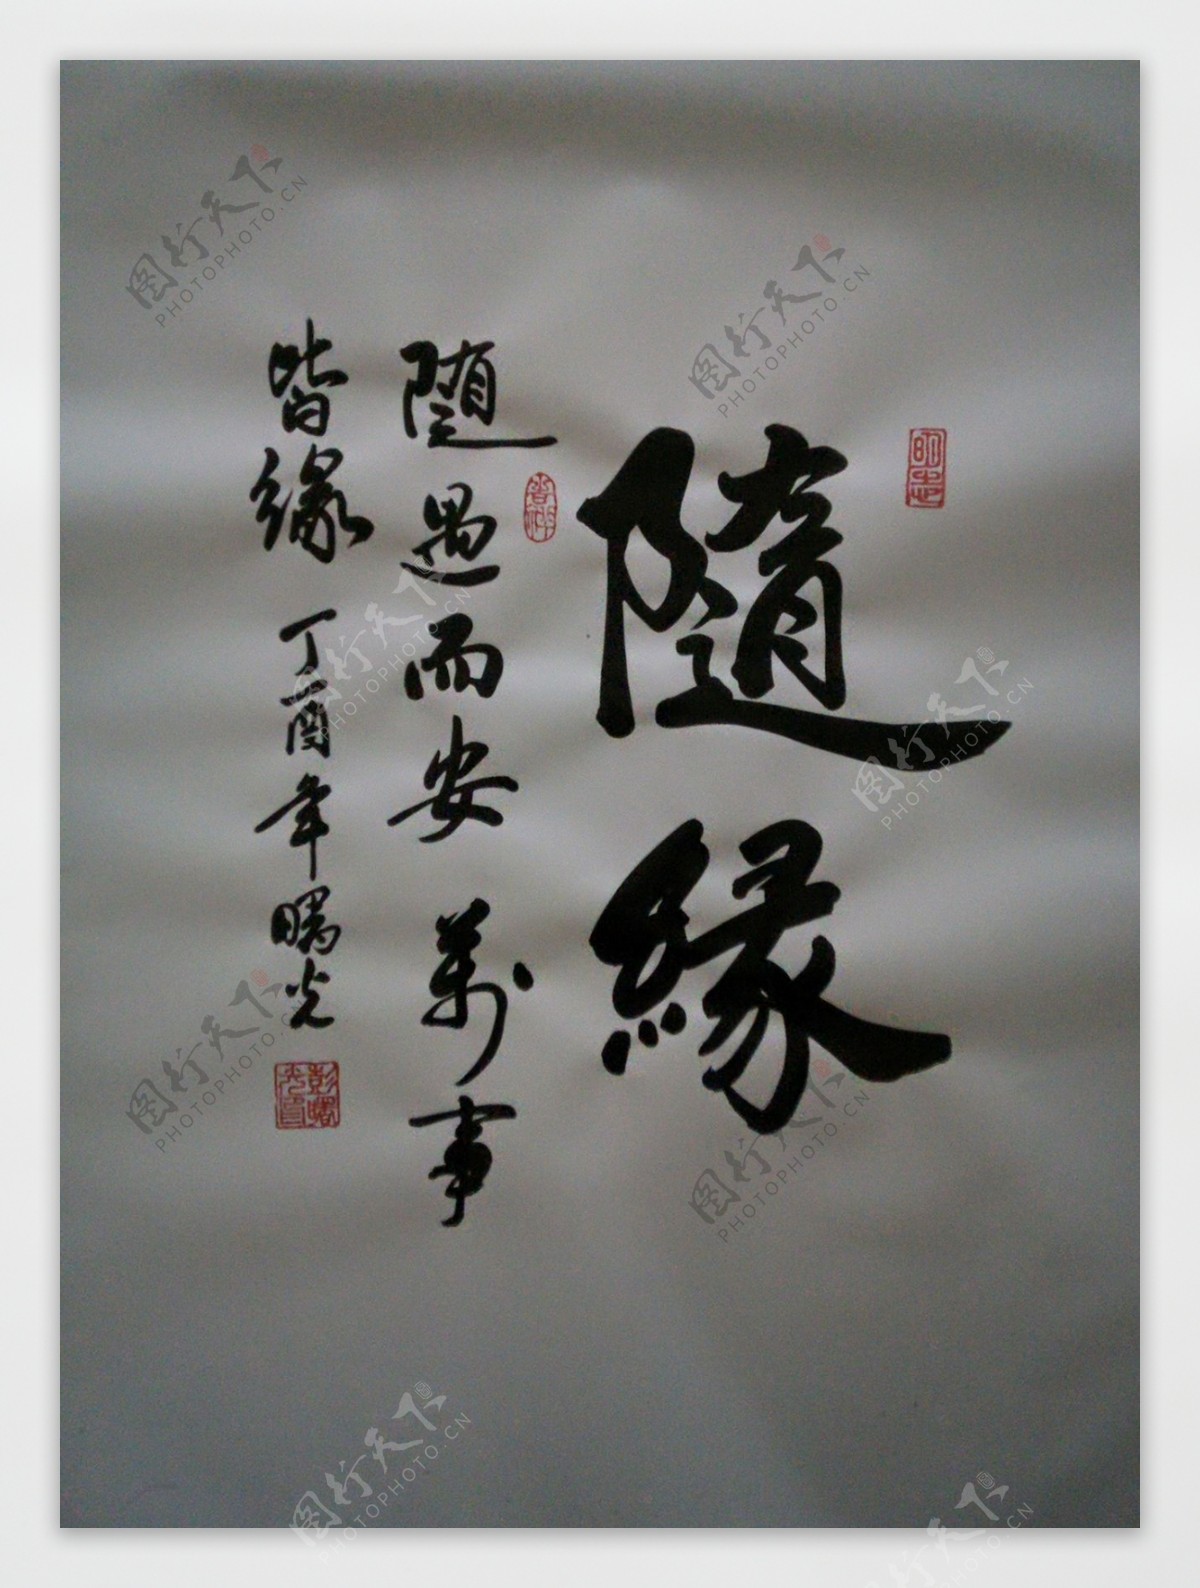 隨緣
隨遇而安萬事
皆緣丁酉年曙光
彭曙光印
图行天下
PHOTOPHOTO.CN
图行天下
PHOTOPHOTO.CN
图行天下
PHOTOPHOTO.CN
图行天下
PHOTOPHOTO.CN
图行天下
PHOTOPHOTO.CN
图行天下
PHOTOPHOTO.CN
图行天下
PHOTOPHOTO.CN
图行天下
PHOTOPHOTO.CN